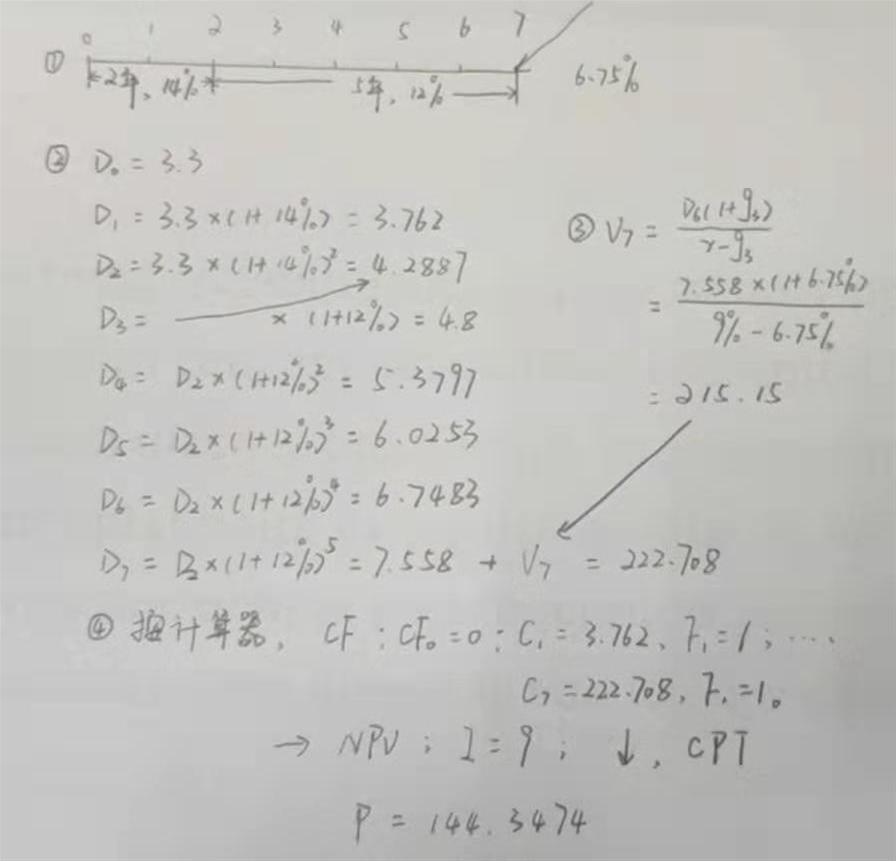 0 1 2 3 4 5 6 7
① 2年, 14% 5年, 12% 6.75%
② D₀ = 3.3
D₁ = 3.3 × (1+14%) = 3.762
D₂ = 3.3 × (1+14%)² = 4.2887
D₃ = × (1+12%) = 4.8
D₄ = D₂ × (1+12%)² = 5.3797
D₅ = D₂ × (1+12%)³ = 6.0253
D₆ = D₂ × (1+12%)⁴ = 6.7483
D₇ = D₂ × (1+12%)⁵ = 7.558 + V₇ = 222.708
③ V₇ = D₆(1+g₃) / r-g₃
= 7.558 × (1+6.75%) / 9% - 6.75%
= 215.15
④ 按计算器, CF : CF₀ = 0 : C₁ = 3.762、F₁ = 1 ; ....
C₇ = 222.708, F₁ = 1。
→ NPV ; I = 9 ; ↓, CPT
P = 144.3474